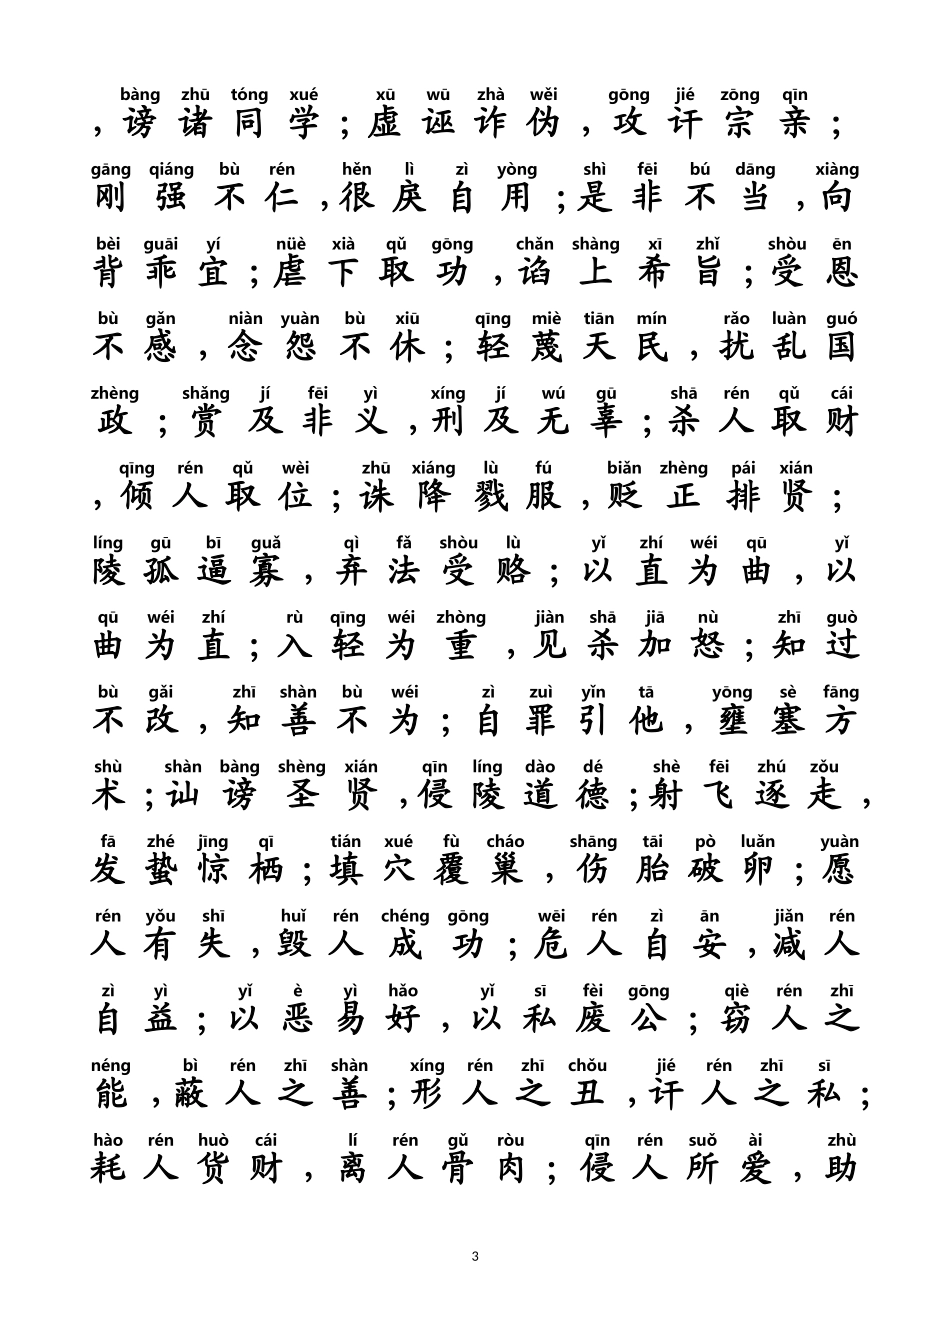 bàng zhū tóng xué xū wū zhà wěi gōng jié zōng qīn
，谤诸同学；虚诬诈伪，攻讦宗亲；
gāng qiáng bù rén hěn lì zì yòng shì fēi bú dāng xiàng
刚强不仁，很戾自用；是非不当，向
bèi guāi yí nüè xià qǔ gōng chǎn shàng xī zhǐ shòu ēn
背乖宜；虐下取功，谄上希旨；受恩
bù gǎn niàn yuàn bù xiū qīng miè tiān mín rǎo luàn guó
不感，念怨不休；轻蔑天民，扰乱国
zhèng shǎng jí fēi yì xíng jí wú gū shā rén qǔ cái
政；赏及非义，刑及无辜；杀人取财
qīng rén qǔ wèi zhū xiáng lù fú biǎn zhèng pái xián
，倾人取位；诛降戮服，贬正排贤；
líng gū bī guǎ qì fǎ shòu lù yǐ zhí wéi qū yǐ
陵孤逼寡，弃法受赂；以直为曲，以
qū wéi zhí rù qīng wéi zhòng jiàn shā jiā nù zhī guò
曲为直；入轻为重，见杀加怒；知过
bù gǎi zhī shàn bù wéi zì zuì yǐn tā yōng sè fāng
不改，知善不为；自罪引他，壅塞方
shù shàn bàng shèng xián qīn líng dào dé shè fēi zhú zǒu
术；讪谤圣贤，侵陵道德；射飞逐走，
fā zhé jīng qī tián xué fù cháo shāng tāi pò luǎn yuàn
发蛰惊栖；填穴覆巢，伤胎破卵；愿
rén yǒu shī huǐ rén chéng gōng wēi rén zì ān jiǎn rén
人有失，毁人成功；危人自安，减人
zì yì yǐ è yì hǎo yǐ sī fèi gōng qiè rén zhī
自益；以恶易好，以私废公；窃人之
néng bì rén zhī shàn xíng rén zhī chǒu jié rén zhī sī
能，蔽人之善；形人之丑，讦人之私；
hào rén huò cái lí rén gǔ ròu qīn rén suǒ ài zhù
耗人货财，离人骨肉；侵人所爱，助
3